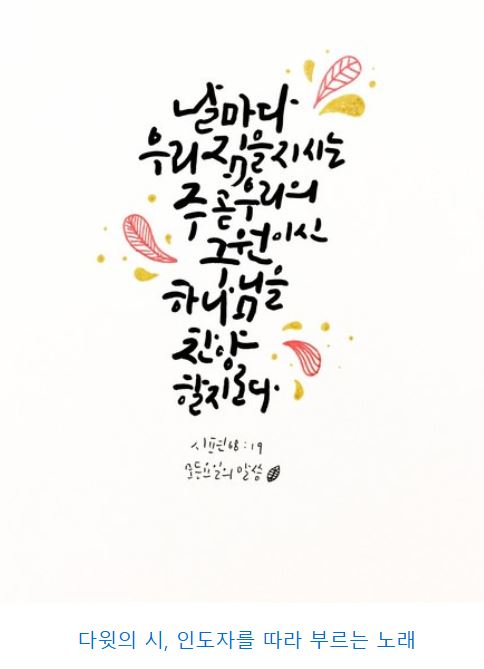 날마다
우리 짐을 지시는
주 곧 우리의
구원이신
하나님을
찬양
할지로다.
시편 68:19
모든요일의 말씀
다윗의 시, 인도자를 따라 부르는 노래